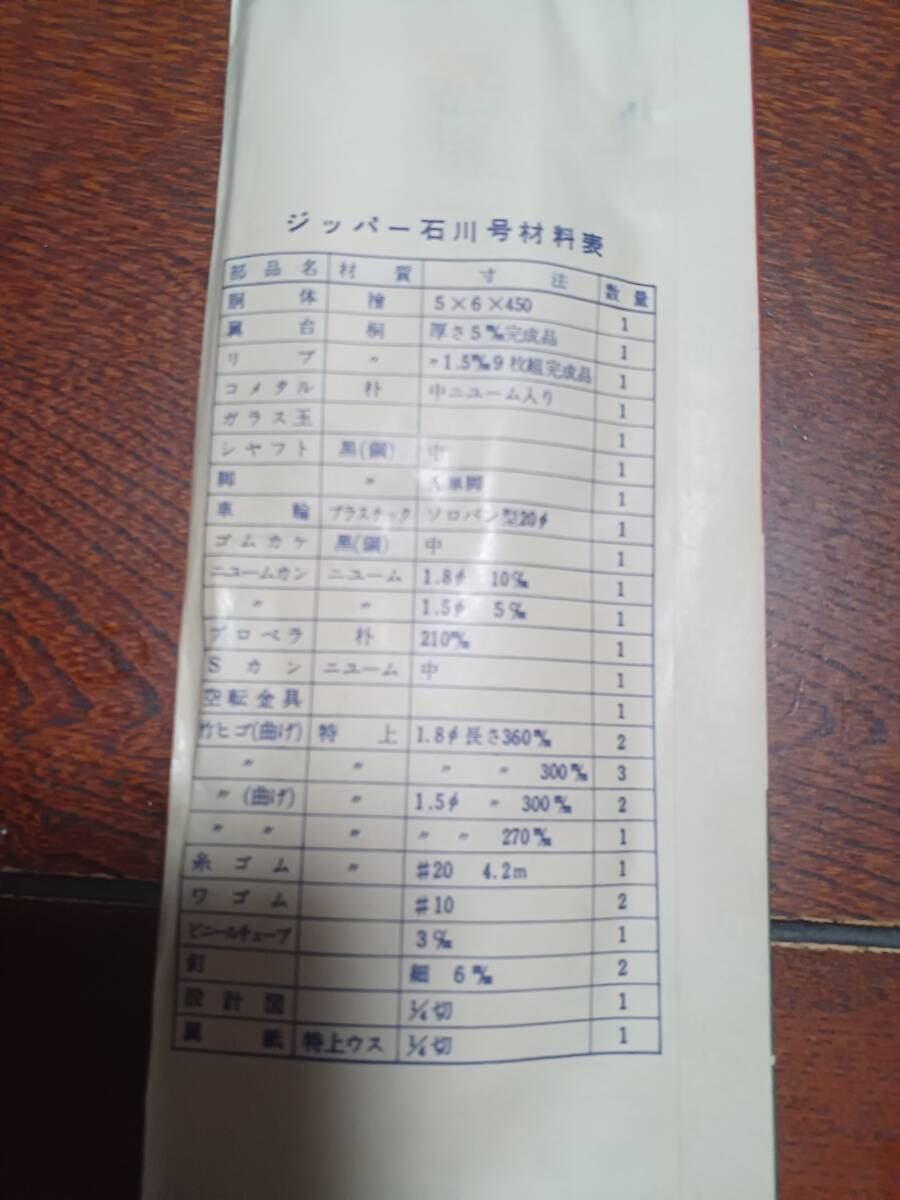 ジッパー石川号材料表
部品名 材質 寸法 数量
胴体 檜 5×6×450 1
翼台 桐 厚さ5㎜完成品 1
リブ 〃 〃1.5㎜9枚組完成品 1
コメタル 朴 中ニューム入り 1
ガラス玉 1
シヤフト 黒(鋼) 中 1
脚 〃 単脚 1
車輪 プラスチック ソロバン型20φ 1
ゴムカケ 黒(鋼) 中 1
ニユームカン ニユーム 1.8φ 10㎝ 1
〃 〃 1.5φ 5㎝ 1
プロペラ 朴 210㎜ 1
Sカン ニユーム 中 1
空転金具 1
竹ヒゴ(曲げ) 特上 1.8φ長さ360㎜ 2
〃 〃 〃 〃 300㎜ 3
〃(曲げ) 〃 1.5φ 〃 300㎜ 2
〃 〃 〃 〃 〃 270㎜ 1
糸ゴム 〃 #20 4.2m 1
ワゴム #10 2
ビニールチューブ 3㎝ 1
釘 細 6㎜ 2
設計図 ¼切 1
翼紙 特上ウス ¼切 1